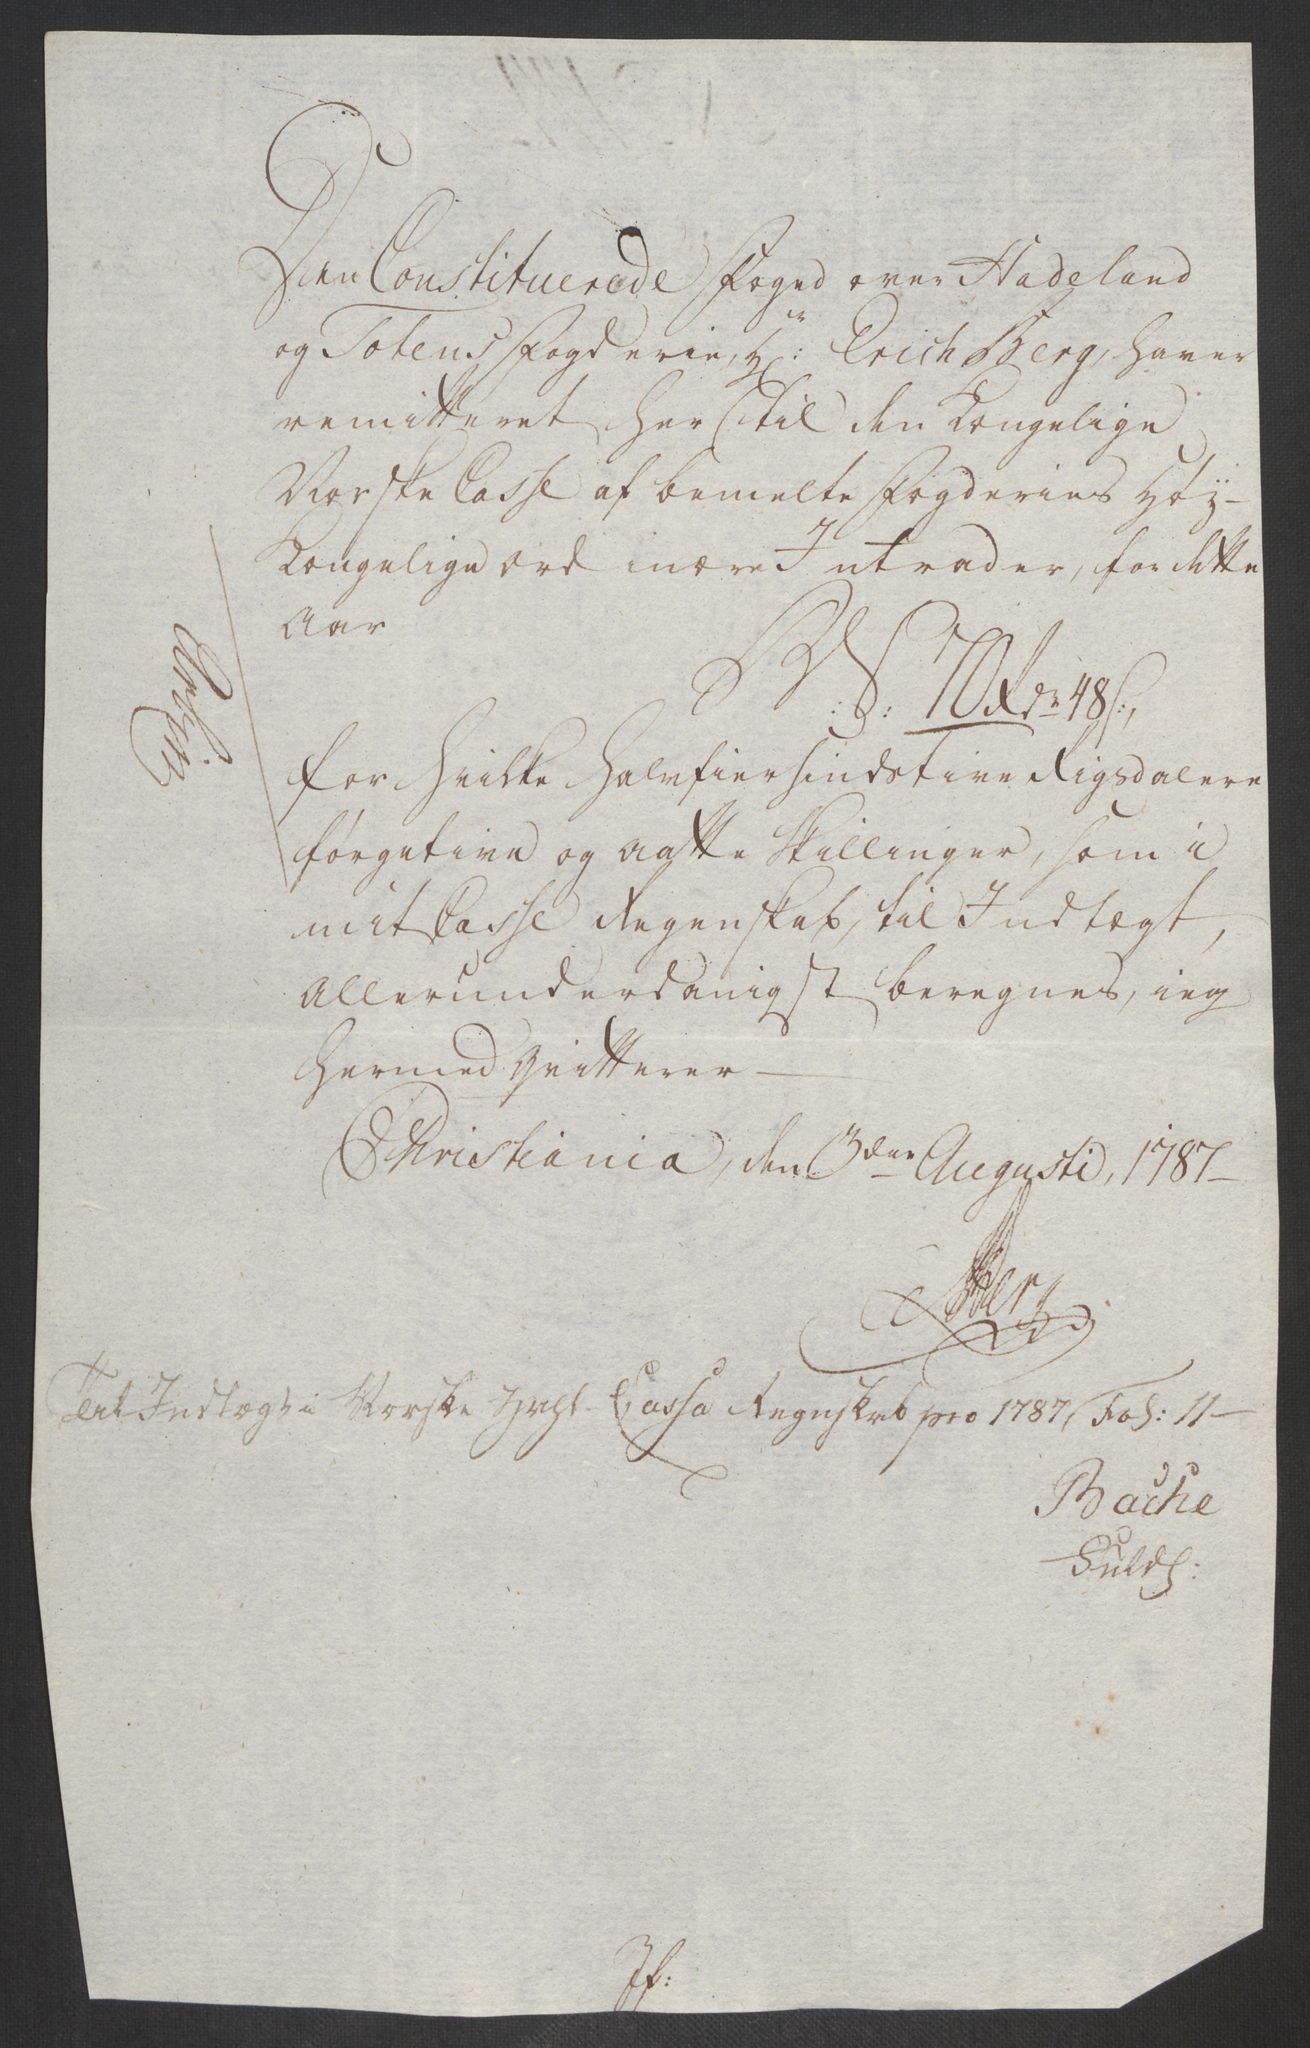 Den Constituerede Foged over Hadeland
og Totens Fogderie, Hr: Erich Berg, haver
remitteret her til den Kongelige
Norske Casse af bemelte Fogderies Høÿ-
Kongelige ordinære Intrader, for dette
Aar
70 Rdr 48 s:,
for hvilke halvfierhindstive Rigsdalere
førgetive og aatte Skillinger, som i
mit Casse Regenskab, til Indtægt,
allerunderdanigst beregnes, ieg
hermed qvitterer —
Christiania, den 3den Augusti, 1787 —
Berg
Til Indtægt i Norske Cassa Regnskab pro 1787, Fol: 11 —
Bache